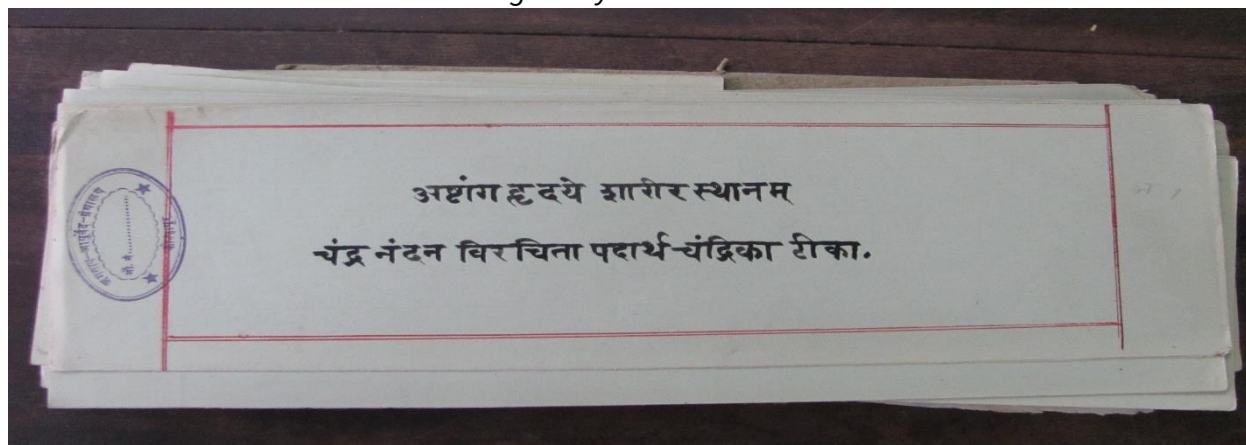 अष्टांग हृदये शारीर स्थानम्
चंद्र नंदन विरचिता पदार्थ-चंद्रिका टीका.